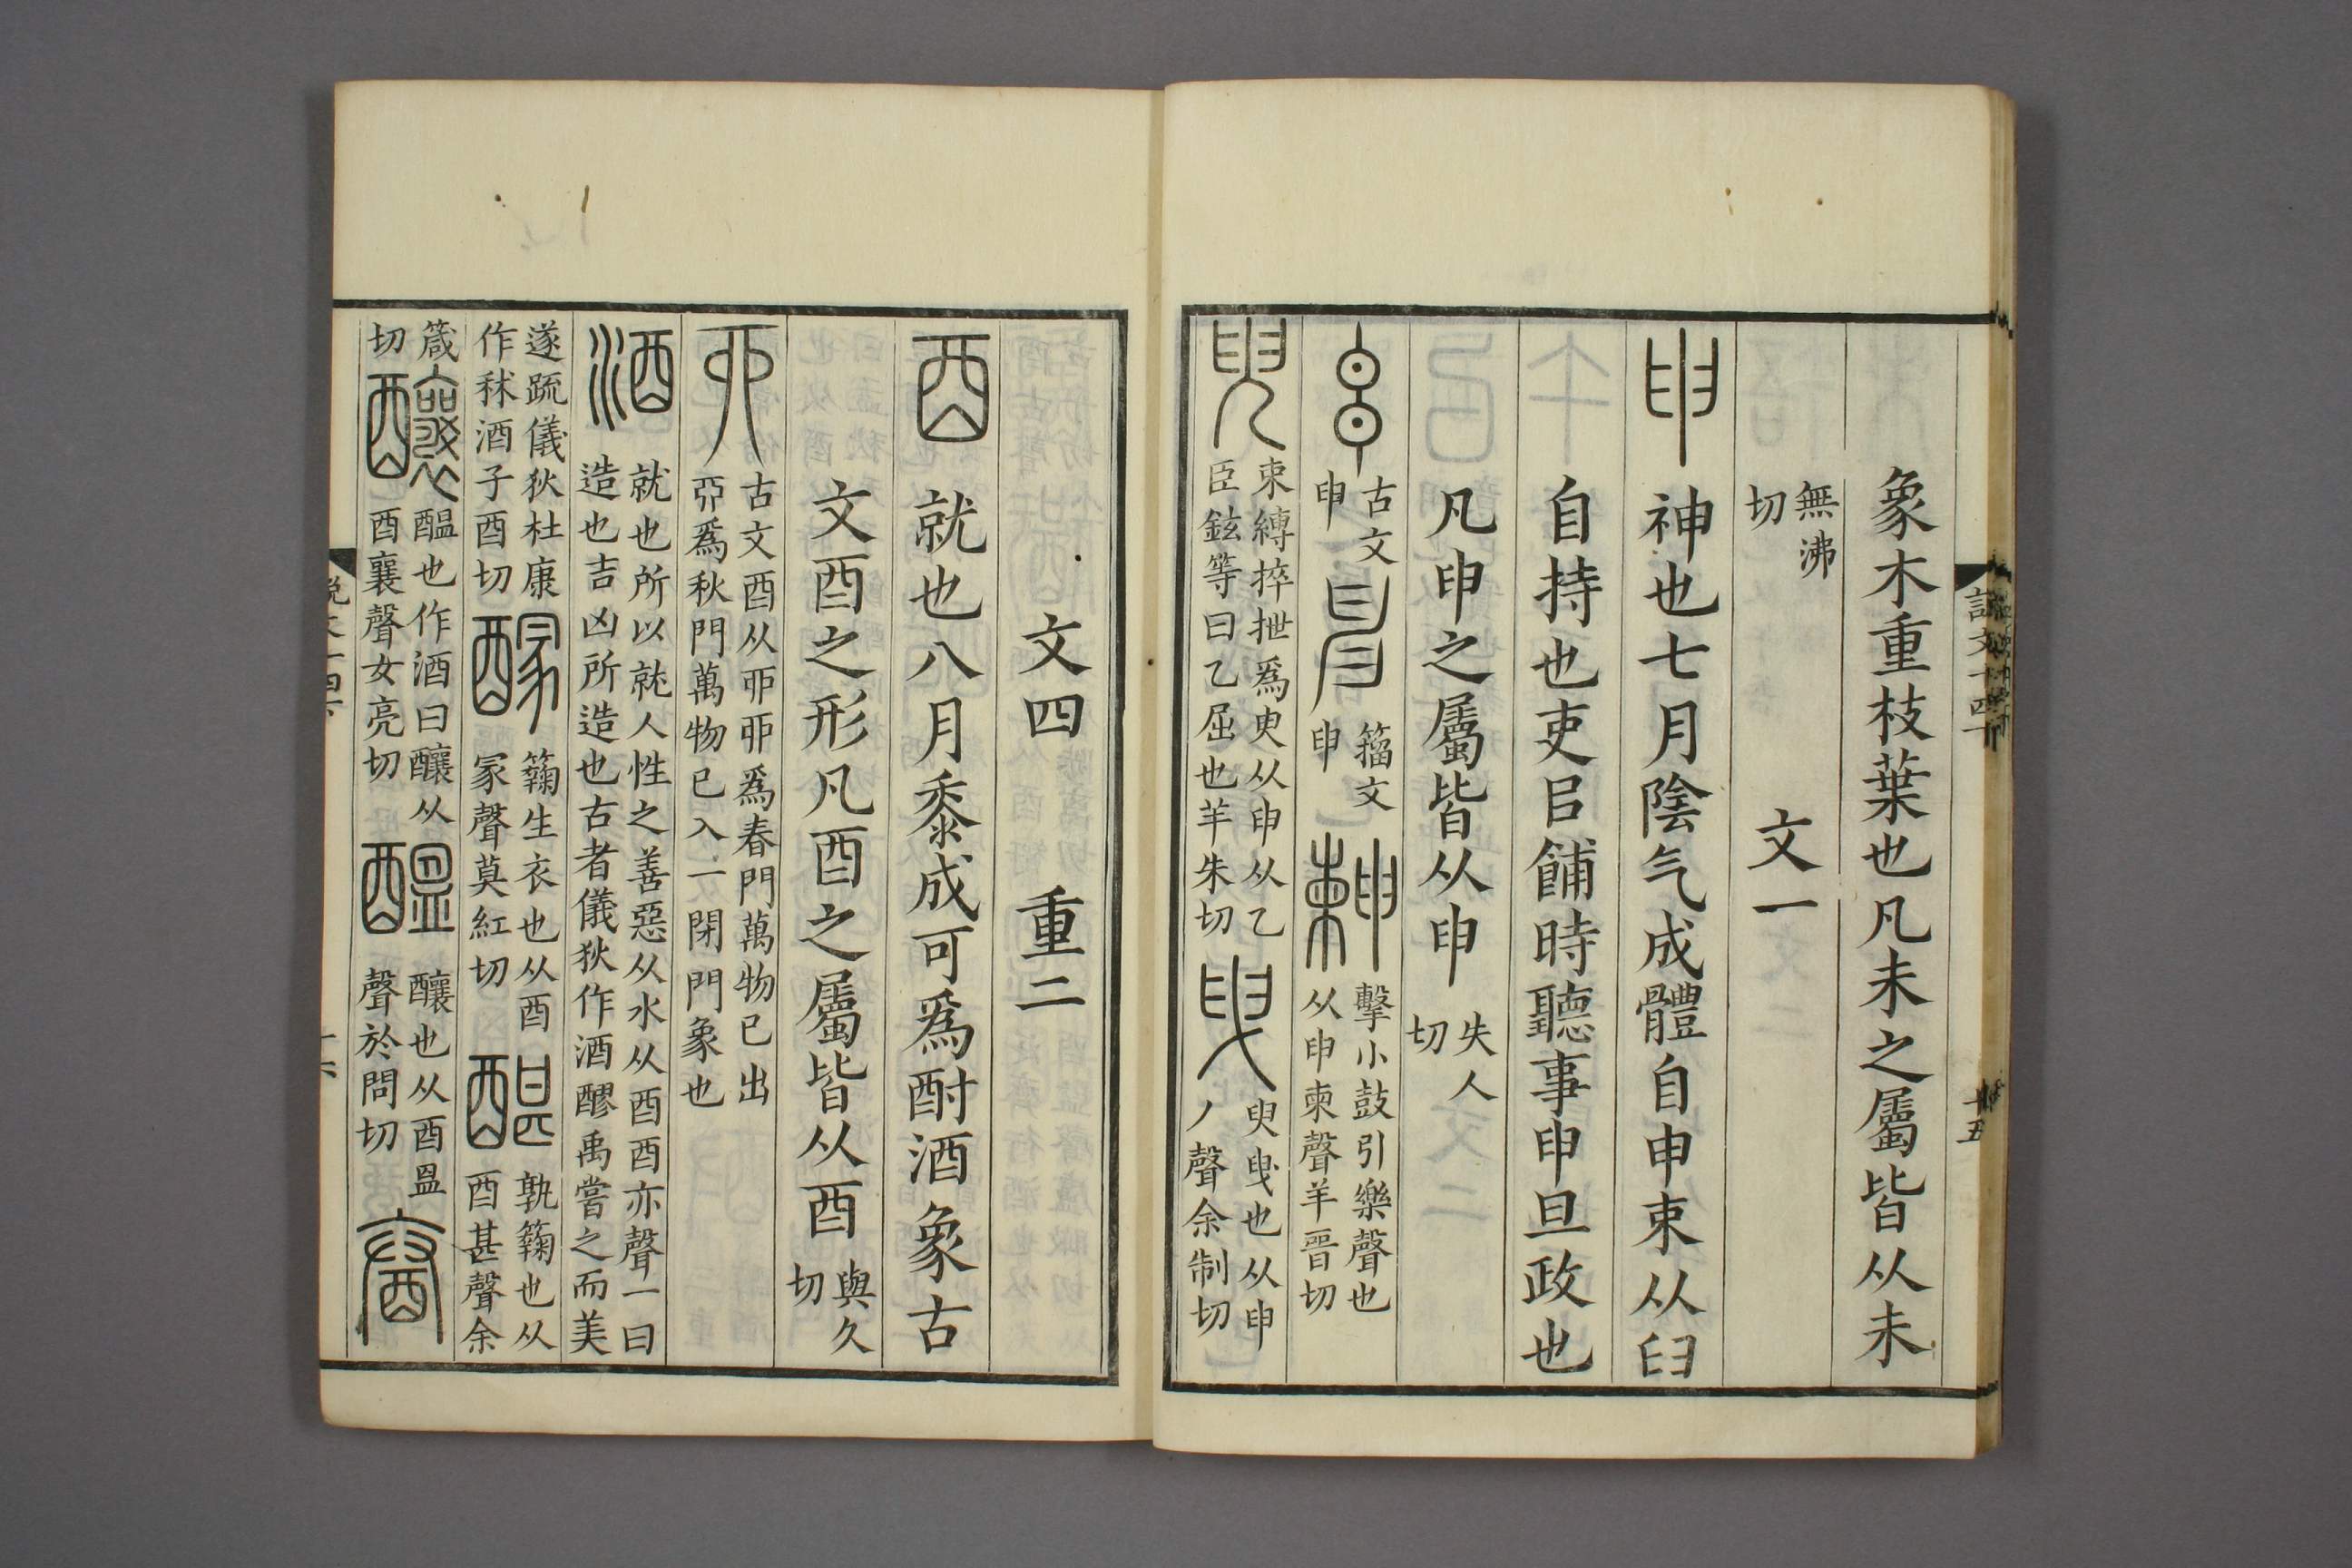 象木重枝葉也凡未之屬皆从未
無沸切 文一
申 神也七月陰气成體自申束从𦥑
自持也吏㠯餔時聽事申旦政也
凡申之屬皆从申 失人切
𢑚 古文申 𦥔 籒文申 𣌾 擊小鼓引樂聲也从申柬聲羊晉切
臾 束縛捽抴爲臾从申从乙臣鉉等曰乙屈也羊朱切 曳 臾曳也从申丿聲余制切
文四 重二
酉 就也八月黍成可爲酎酒象古
文酉之形凡酉之屬皆从酉 與久切
丣 古文酉从丣丣爲春門萬物已出丣爲秋門萬物已入一閉門象也
酒 就也所以就人性之善惡从水从酉酉亦聲一曰造也吉凶所造也古者儀狄作酒醪禹嘗之而美
遂疏儀狄杜康作秫酒子酉切 醿 籟生衣也从酉冡聲莫紅切 醓 孰籟也从酉甚聲余
箴切 釀 醖也作酒曰釀从酉襄聲女亮切 醖 釀也从酉𥁕聲於問切 酓
說文十四下
十五
十六